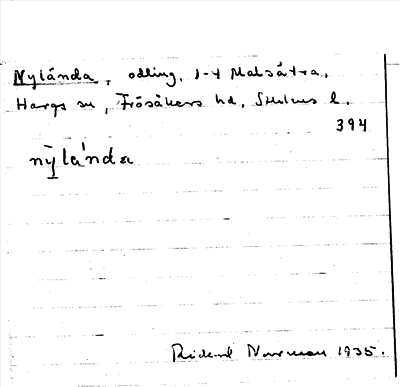 Nylánda, odling, 1-4 Malsätra,
Hargs sn, Frösåkers hd, Sthlms l.
394
nỳlánda
Rickard Norrman 1935.